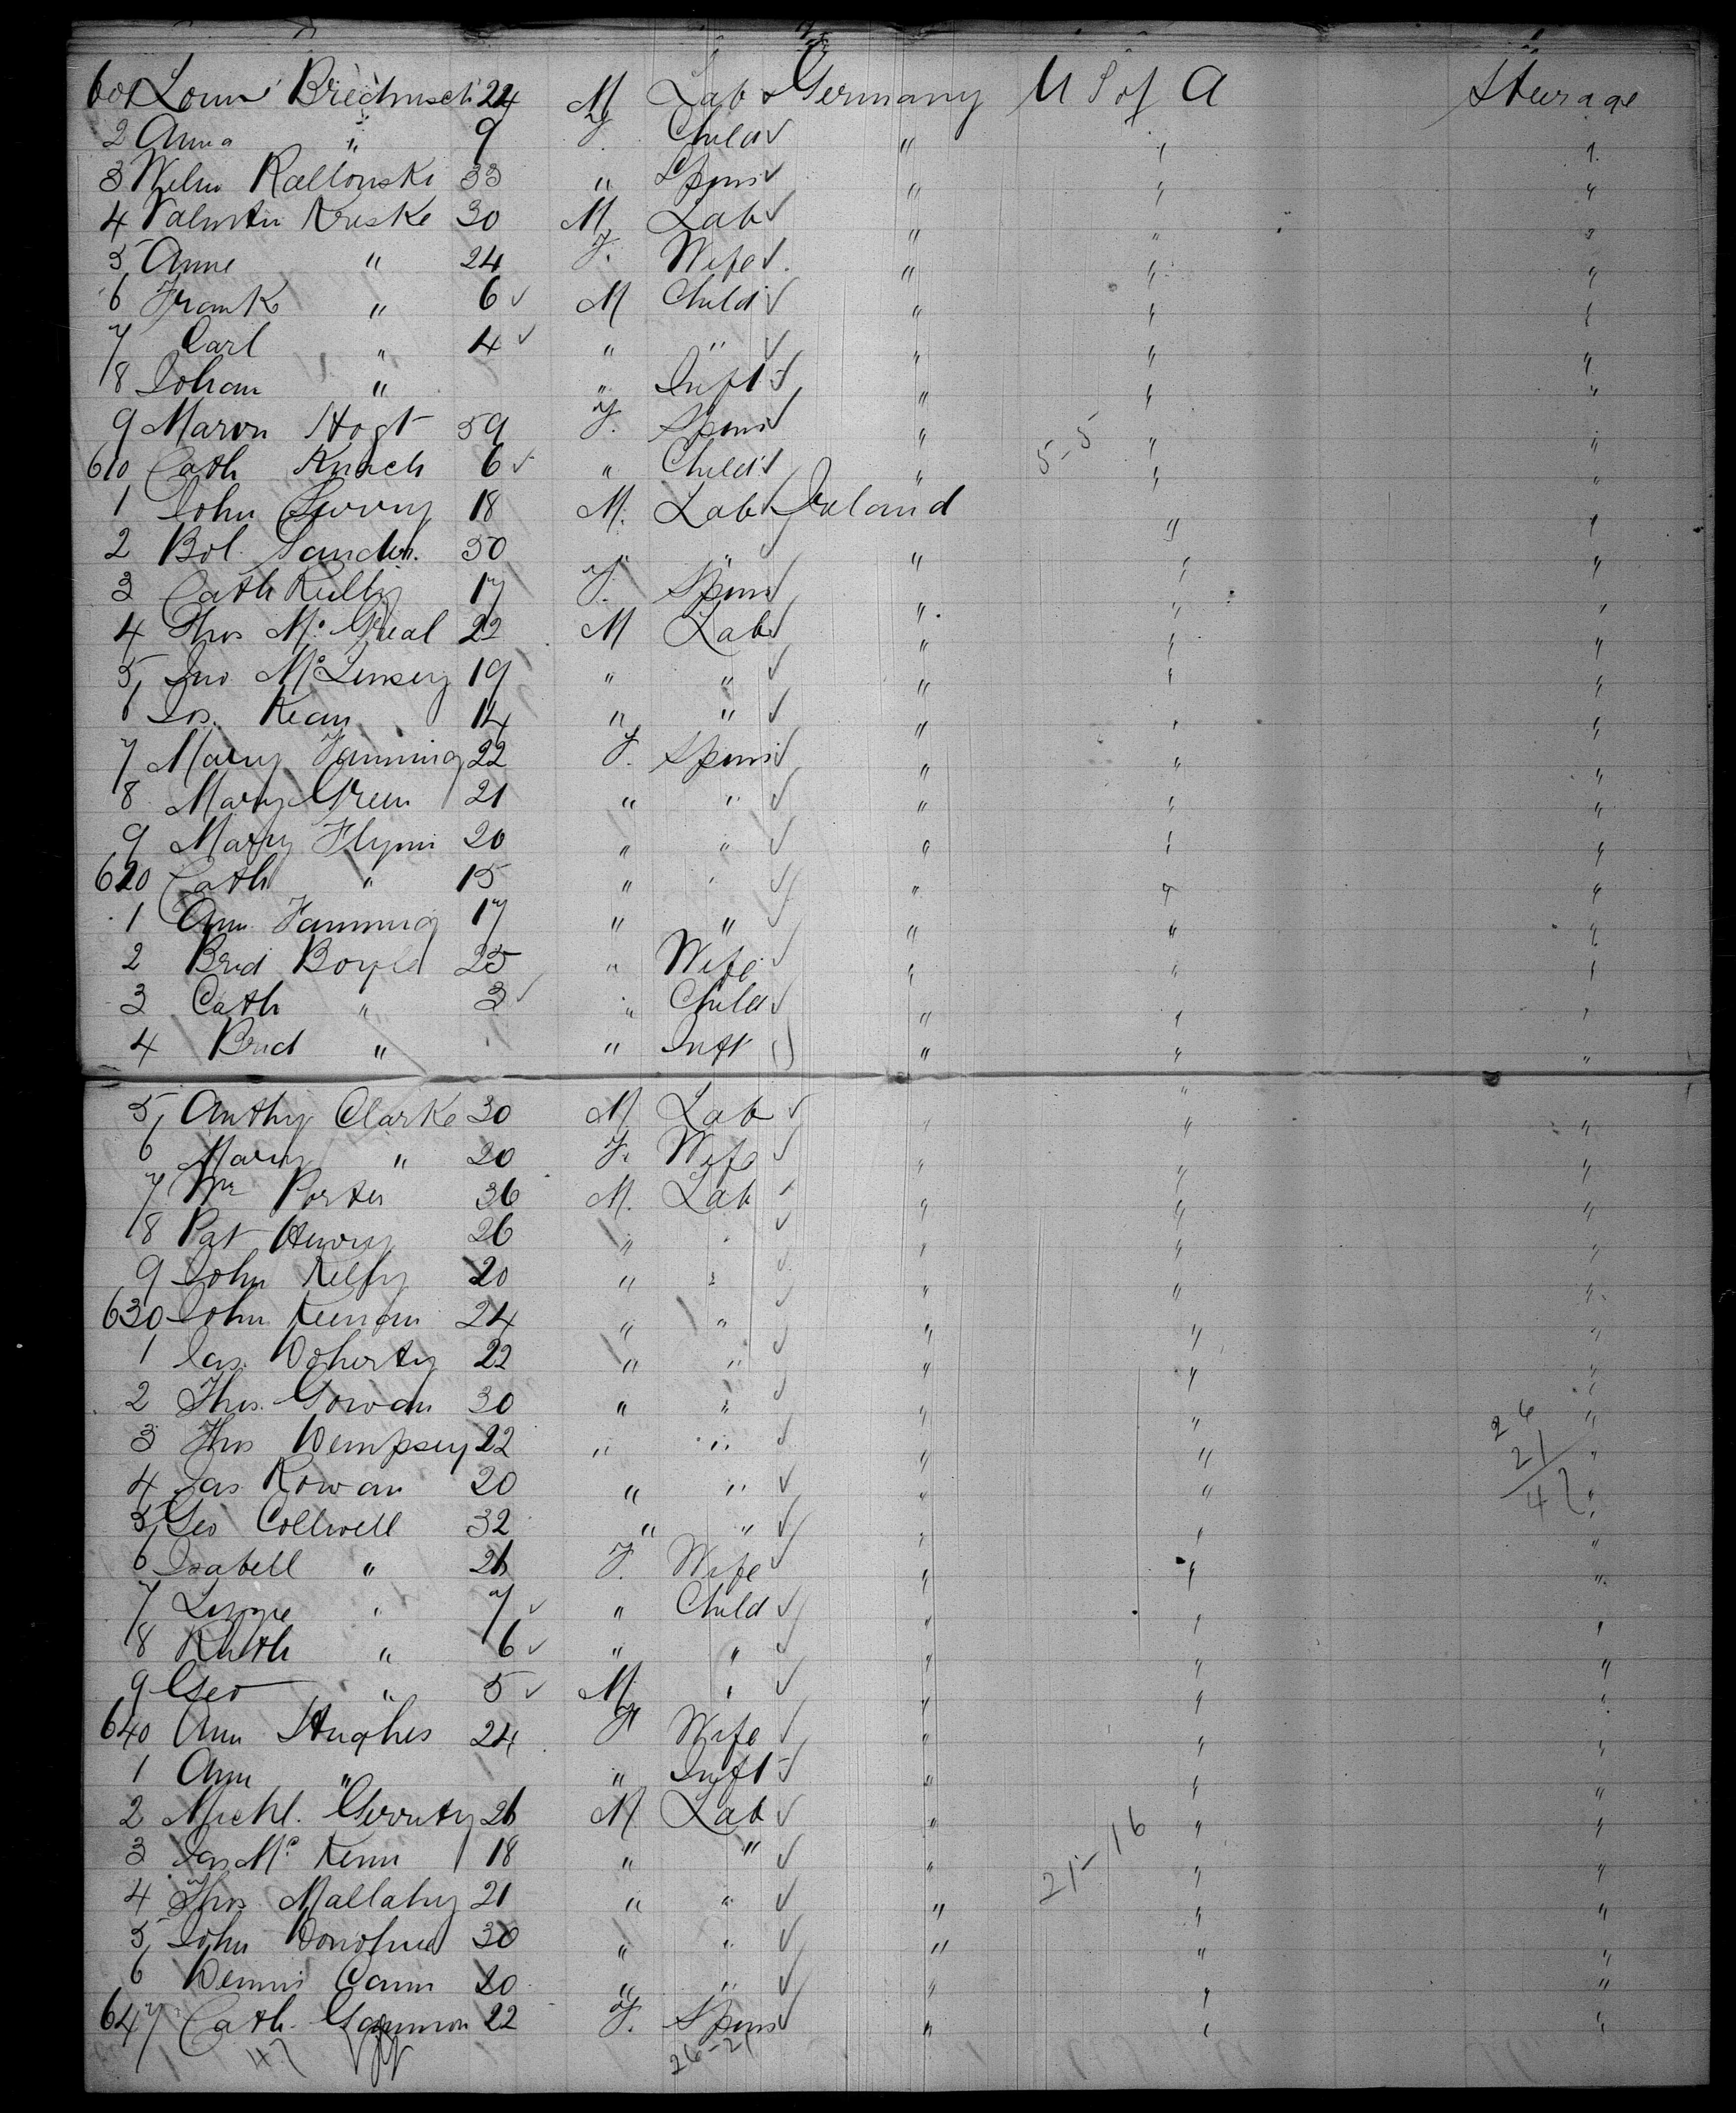 601 Louis 24 M Lab Germany U S of A Steerage
2 Anna " 9 F. Child " " "
3 Wilm 33 " Spins " " "
4 Valentin Kruske 30 M Lab " " "
5 Anne " 24 F. Wife " " "
6 Frank " 6 M Child " " "
7 Carl " 4 " " " " "
8 Johan " " Inft " " "
9 Hogt 59 F. Spins " " "
5-5
610 Cath 6 " Child " " "
1 John 18 M. Lab Ireland " "
2 50 " " " " "
3 Cath 17 F. Spins " " "
4 Thos Mc Greal 22 M Lab " " "
5 Jno 19 " " " " "
6 Jos. Kean 14 " " " " "
7 Mary Fanning 22 F. Spins " " "
8 Mary Green 21 " " " " "
9 Mary Flynn 20 " " " " "
620 Cath " 15 " " " " "
1 Ann Fanning 17 " " " " "
2 Brid Boyle 25 " Wife " " "
3 Cath " 3 " Child " " "
4 Brid " " Inft " " "
5 Anthy Clarke 30 M Lab " " "
6 Mary " 20 F. Wife " " "
7 Wm Porter 36 M. Lab " " "
8 Pat Henry 26 " " " " "
9 John 20 " " " " "
630 John Keenan 24 " " " " "
1 Jas. Doherty 22 " " " " "
2 Thos. Gowan 30 " " " " "
3 Thos Dempsey 22 " " " " "
26
21
47
4 Jas Rowan 20 " " " " "
5 Geo Collwell 32 " " " " "
6 Isabell " 26 F. Wife " " "
7 " 7 " Child " " "
8 Ruth " 6 " " " " "
9 Geo " 5 M " " " "
640 Ann Hughes 24 F Wife " " "
1 Ann " " Inft " " "
2 Michl. Gerrity 26 M Lab " " "
3 Jas Mc Kenn 18 " " " " "
21-16
4 Thos. Mallahy 21 " " " " "
5 John Donohue 30 " " " " "
6 Dennis 20 " " " " "
647 Cath. Gammon 22 F. Spins " " "
47 26-21